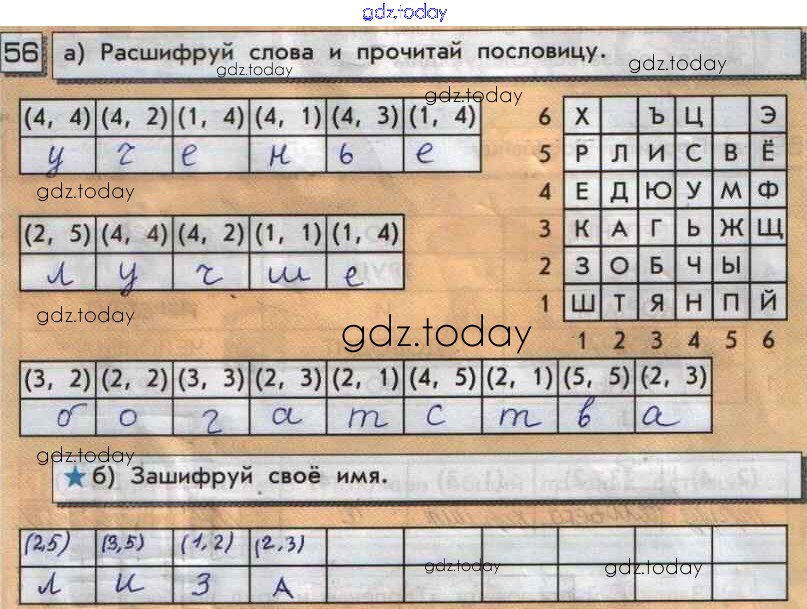 gdz.today
56 а) Расшифруй слова и прочитай пословицу.
gdz.today gdz.today
gdz.today
(4, 4) (4, 2) (1, 4) (4, 1) (4, 3) (1, 4)
у ч е н ь е
gdz.today
(2, 5) (4, 4) (4, 2) (1, 1) (1, 4)
л у ч ш е
gdz.today
6 Х Ъ Ц Э
5 Р Л И С В Ё
4 Е Д Ю У М Ф
3 К А Г Ь Ж Щ
2 З О Б Ч Ы
1 Ш Т Я Н П Й
1 2 3 4 5 6
gdz.today
(3, 2) (2, 2) (3, 3) (2, 3) (2, 1) (4, 5) (2, 1) (5, 5) (2, 3)
б о г а т с т в а
gdz.today
★ б) Зашифруй своё имя.
(2,5) (3,5) (1,2) (2,3)
Л И З А
gdz.today gdz.today